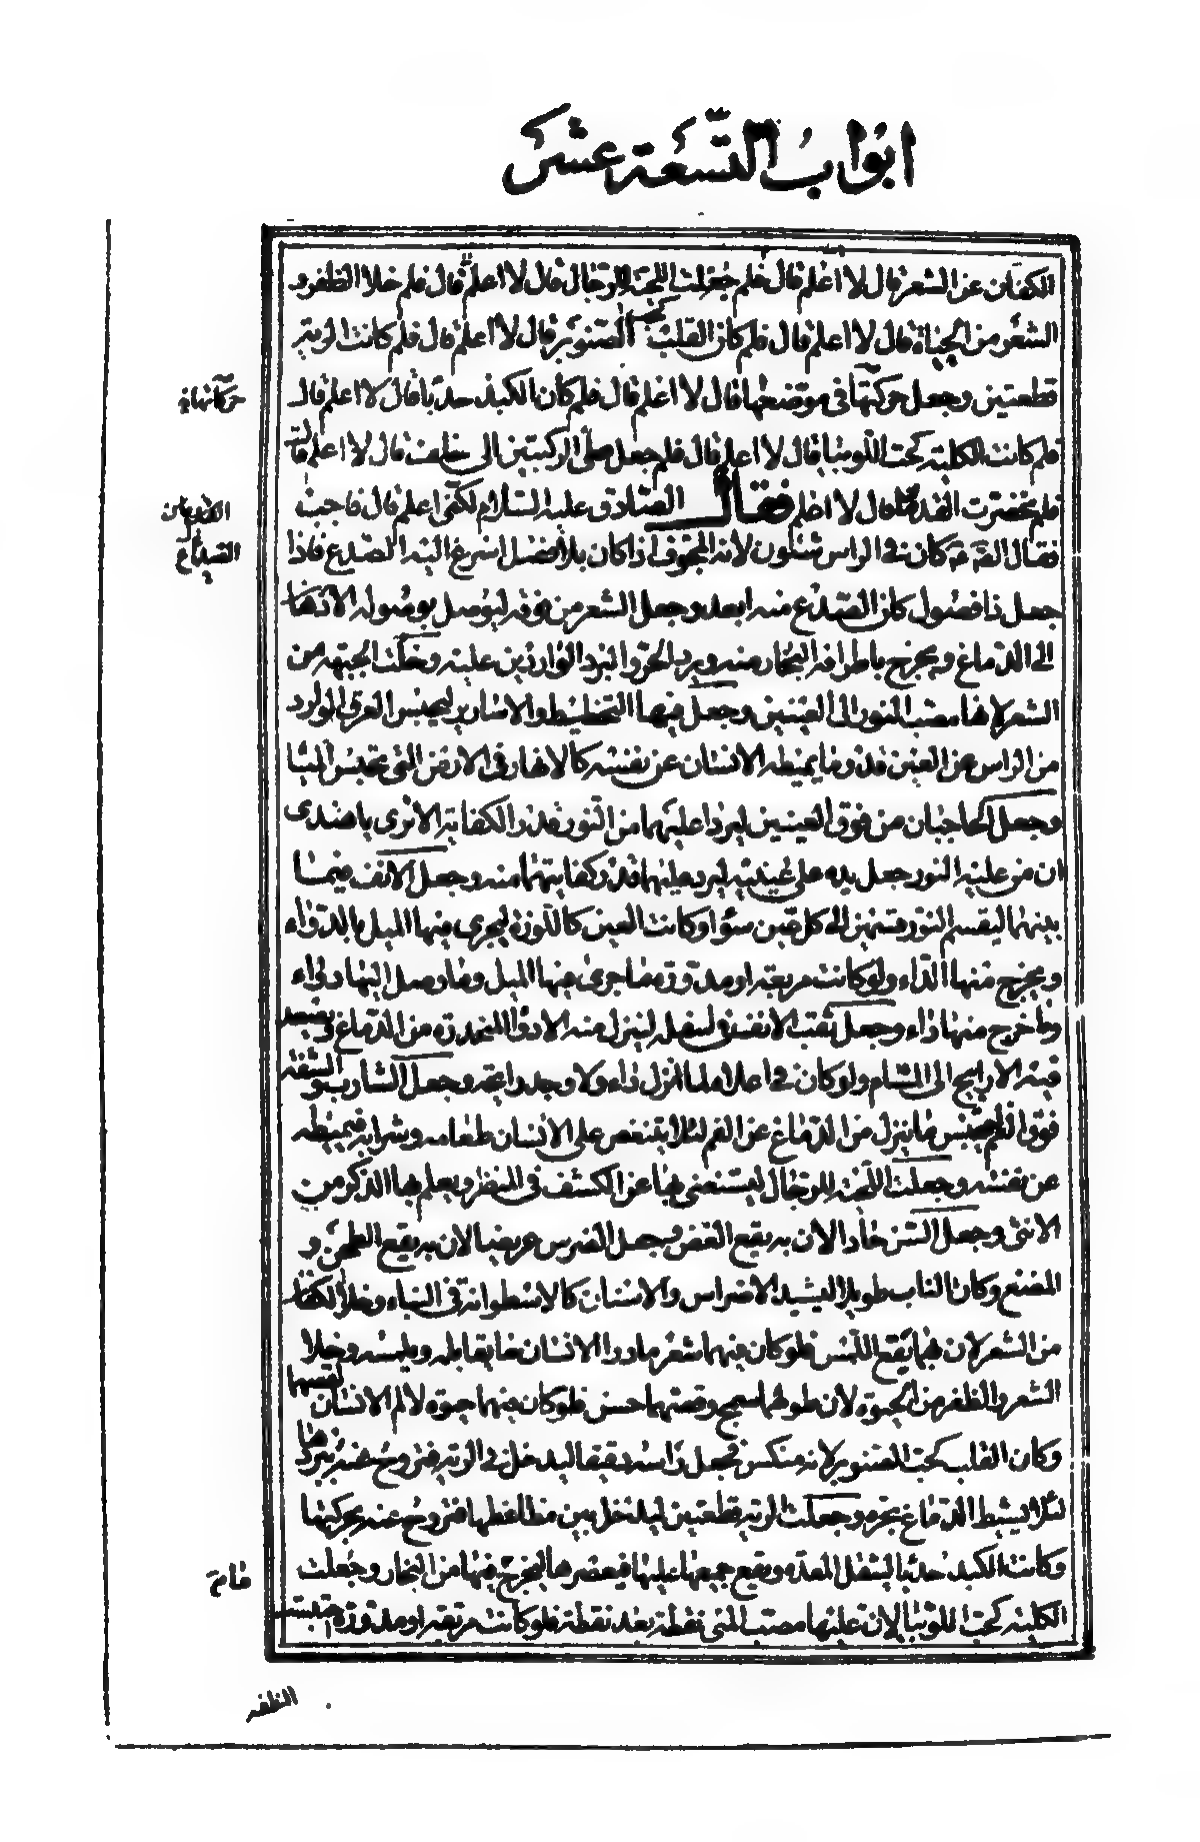 ابواب التسعة عشر
الكفان عن الشعر قال لا اعلم قال فلم جعلت اللحية للرجال قال لا اعلم قال فلم خلا الظفر و
الشعر من الحياة قال لا اعلم قال فلم كان القلب كحب الصنوبر قال لا اعلم قال فلم كانت الرية
قطعتين وجعل حركتها في موضعها قال لا اعلم قال فلم كان الكبد حدبا قال لا اعلم قال
فلم كانت الكلية كحب اللوبيا قال لا اعلم قال فلم جعل طي الركبتين الى خلف قال لا اعلم قال
فلم تخصرت القدم قال لا اعلم فقال الصادق عليه السلام لكني اعلم قال فاجب
فقال كان في الراس شئون لان المجوف اذا كان بلا فصل اسرع اليه الصدع فاذا
جعل ذا فصول كان الصدع منه ابعد وجعل الشعر من فوقه ليوصل بوصوله الادهان
الى الدماغ ويخرج باطرافه البخار منه ويرد الحر والبرد الواردين عليه وخلت الجبهة من
الشعر لانها مصب النور الى العينين وجعل فيها التخطيط والاسارير ليحبس العرق الوارد
من الراس عن العين قدر ما يميطه الانسان عن نفسه كالانهار في الارض التي تحبس المياه
وجعل الحاجبان من فوق العينين ليردا عليهما من النور قدر الكفاية الا ترى يا هندى
ان من غلبه النور جعل يده على عينيه ليرد عليها قدر كفايتهما منه وجعل الانف فيما
بينهما ليقسم النور قسمين الى كل عين سواء وكانت العين كاللوزة ليجرى فيها الميل بالدواء
ويخرج منها الداء ولو كانت مربعة او مدورة ما جرى فيها الميل وما وصل اليها دواء
وما خرج منها داء وجعل ثقب الانف في اسفله لينزل منه الادواء المنحدرة من الدماغ ويصعد
فيه الاراييح الى المشام ولو كان في اعلاه لما انزل داء ولا وجد رايحة وجعل الشارب والشفة
فوق الفم لحبس ما ينزل من الدماغ عن الفم لئلا يتنغص على الانسان طعامه وشرابه فيميطه
عن نفسه وجعلت اللحية للرجال ليستغنى بها عن الكشف في المنظر ويعلم بها الذكر من
الانثى وجعل السن حادا لان به يقع العض وجعل الضرس عريضا لان به يقع الطحن و
المضغ وكان الناب طويلا ليشيد الاضراس والاسنان كالاسطوانة في البناء وخلا الكفان
من الشعر لان بهما يقع اللمس فلو كان فيهما شعر ما درى الانسان ما يقابله ويلمسه وخلا
الشعر والظفر من الحيوة لان طولهما سمج وقصهما حسن فلو كان فيهما حيوة لالم الانسان لقصهما
وكان القلب كحب الصنوبر لانه منكس فجعل راسه دقيقا ليدخل في الرية فتروح عنه ببردها
لئلا يشيط الدماغ بحره وجعلت الرية قطعتين ليدخل بين مضاغطها فتروح عنه بحركتها
وكانت الكبد حدبا ليثقل المعدة ويقع جميعها عليها فيعصرها ليخرج ما فيها من البخار وجعلت
الكلية كحب اللوبيا لان عليها مصب المني نقطة بعد نقطة فلو كانت مربعة او مدورة احتبست
النقطة